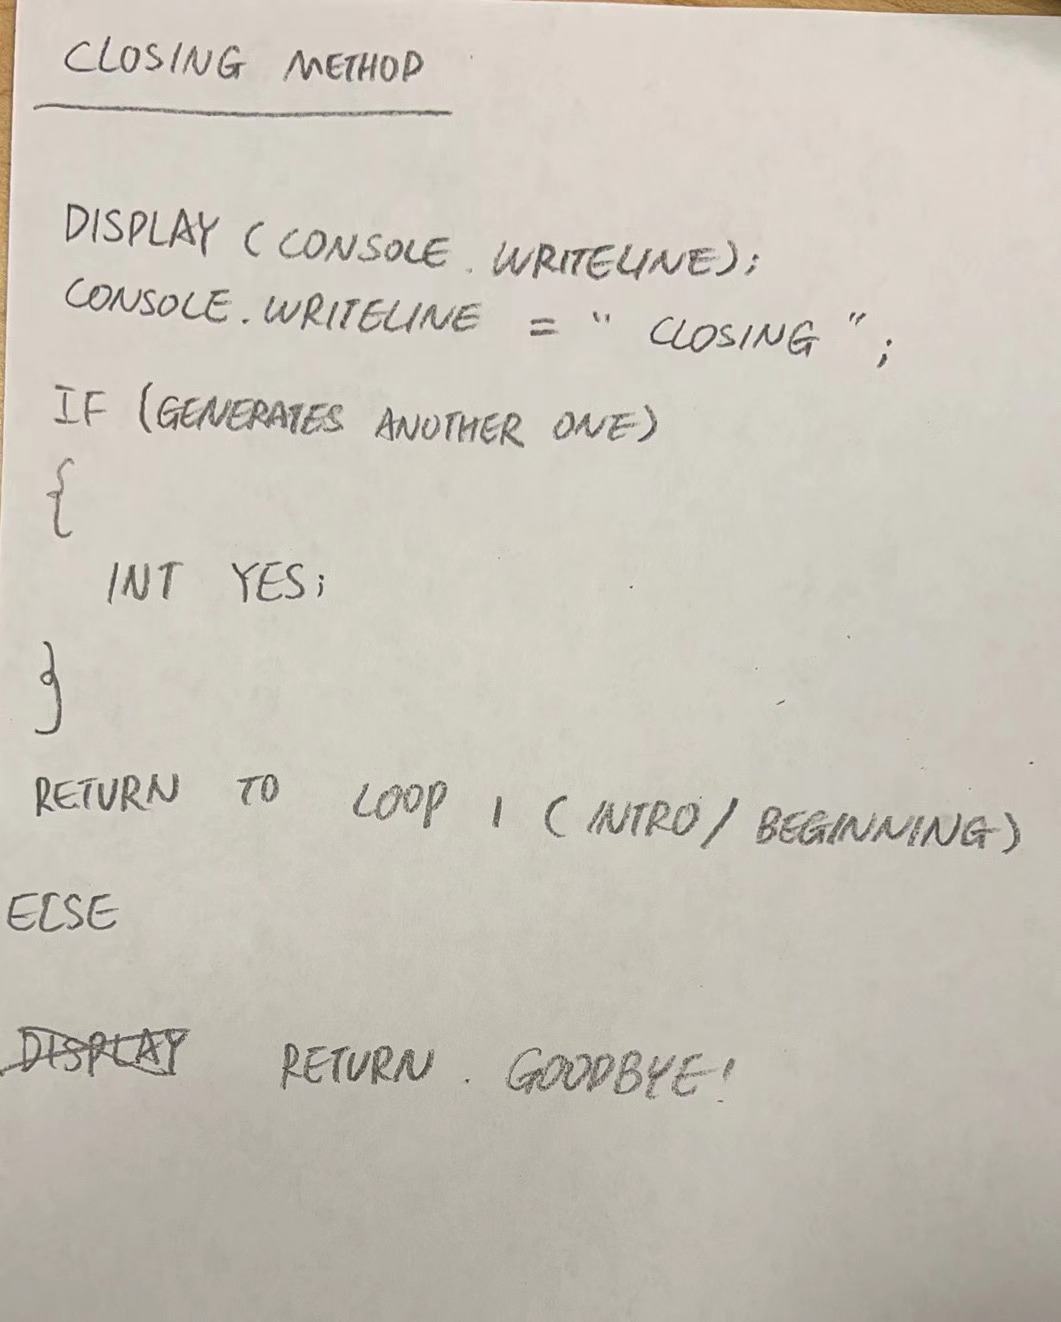 CLOSING METHOD
DISPLAY (CONSOLE.WRITELINE);
CONSOLE.WRITELINE = " CLOSING ";
IF (GENERATES ANOTHER ONE)
{
INT YES;
}
RETURN TO LOOP 1 (INTRO/BEGINNING)
ELSE
DISPLAY RETURN. GOODBYE!